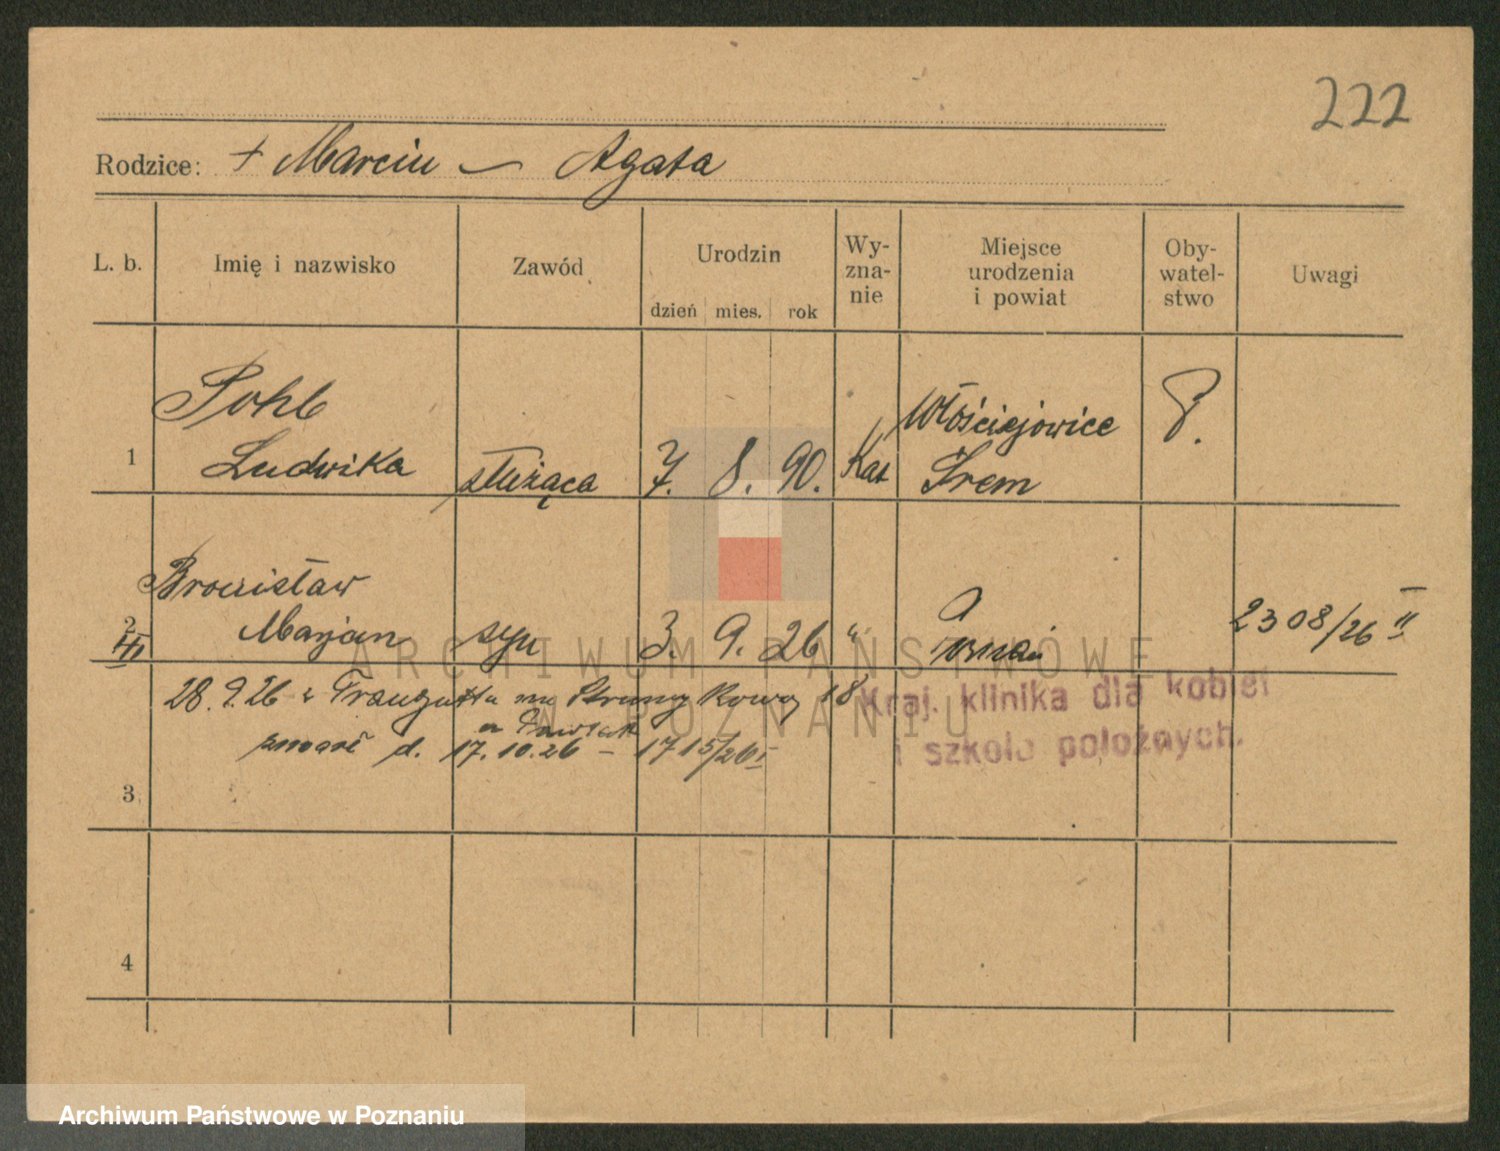 222
Rodzice: + Marcin — Agata
L. b. Imię i nazwisko Zawód Urodzin dzień mies. rok Wy-zna-nie Miejsce urodzenia i powiat Oby-watel-stwo Uwagi
Pohl Włościejowice P.
1 Ludwika służąca 7. 8. 90. Kat Śrem
Bronisław
2 Marjan syn 3. 9. 26 " Poznań 2308/26 II
III
28. 9. 26 z Traugutta na Strumykową 18
Kraj. klinika dla kobiet
i szkoła położnych.
zmarł d. 17. 10. 26 — 1715/26 I
3
4
ARCHIWUM PAŃSTWOWE
W POZNANIU
Archiwum Państwowe w Poznaniu